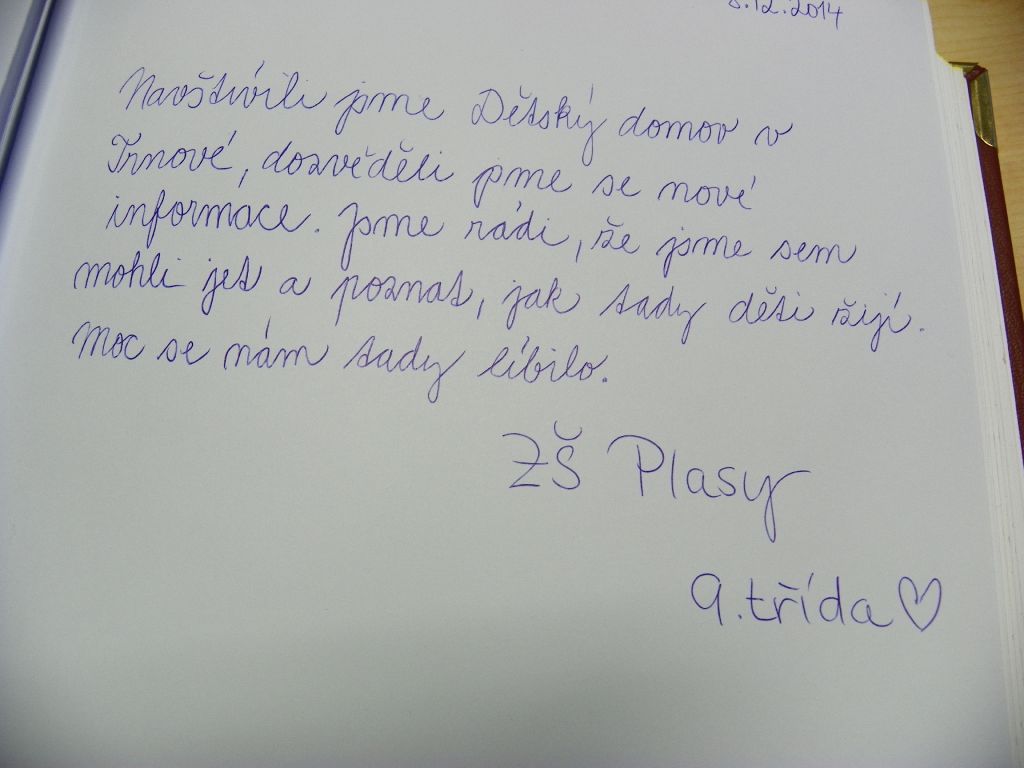 8.12.2014
Navštívili jsme Dětský domov v
Trnové, dozvěděli jsme se nové
informace. Jsme rádi, že jsme sem
mohli jet a poznat, jak tady děti žijí.
Moc se nám tady líbilo.
ZŠ Plasy
9. třída ♡